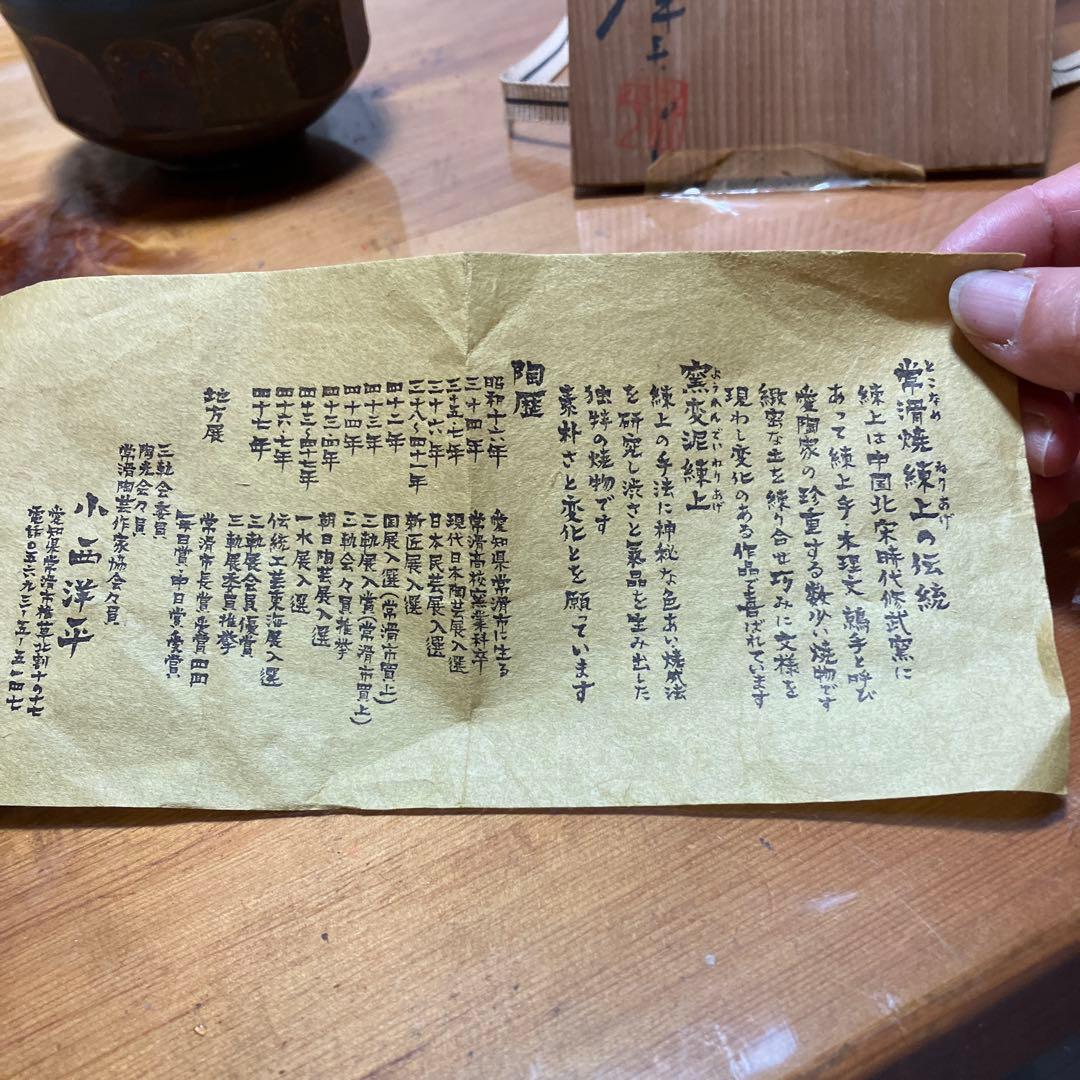 常滑焼 練上の伝統
とこなめ
ねりあげ
練上は中国北宋時代修武窯に
あって練上手・木理文 鶉手と呼び
愛陶家の珍重する数少い焼物です
緻密な土を練り合せ巧みに文様を
現わし変化のある作品で喜ばれています
窯変泥練上
ようへんでいねりあげ
練上の手法に神秘な色あい焼成法
を研究し渋さと気品を生み出した
独特の焼物です
素朴さと変化とを願っています
陶歴
昭和十六年 愛知県常滑市に生る
三十四年 常滑高校窯業科卒
三十五・七年 現代日本陶芸展入選
三十六・七年 日本民芸展入選
三十八~四十一年 新匠展入選
四十二年 国展入選(常滑市買上)
四十三年 三軌展入賞(常滑市買上)
四十四年 三軌会々員推挙
四十三・四年 朝日陶芸展入選
四十三~四十七年 一水展入選
四十六・七年 伝統工芸東海展入選
四十七年 三軌展会員優賞
三軌展委員推挙
地方展 常滑市長賞受賞四回
毎日賞 中日賞受賞
三軌会委員
陶光会々員
常滑陶芸作家協会々員
小西洋平
愛知県常滑市椎草北割十の十七
電話〇五六九三-五-五一四七